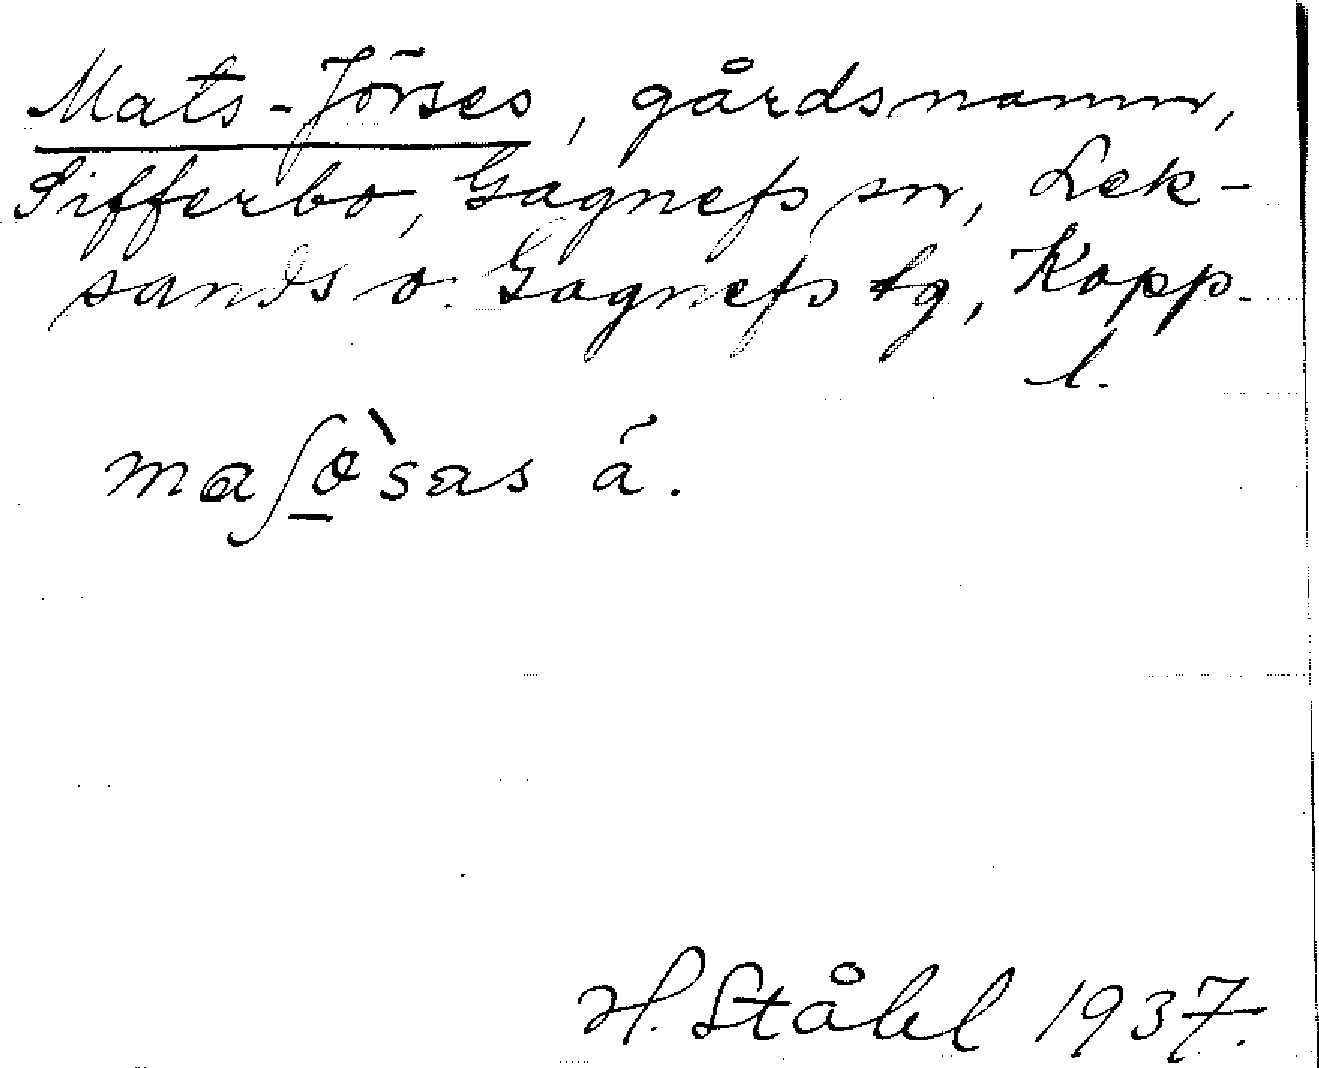 Mats-Jörses, gårdsnamn,
Sifferbo, Gagnefs sn, Lek-
sands o. Gagnefs tg, Kopp.
l.
maʃɵ̠̀sas á.
H. Ståhl 1937.